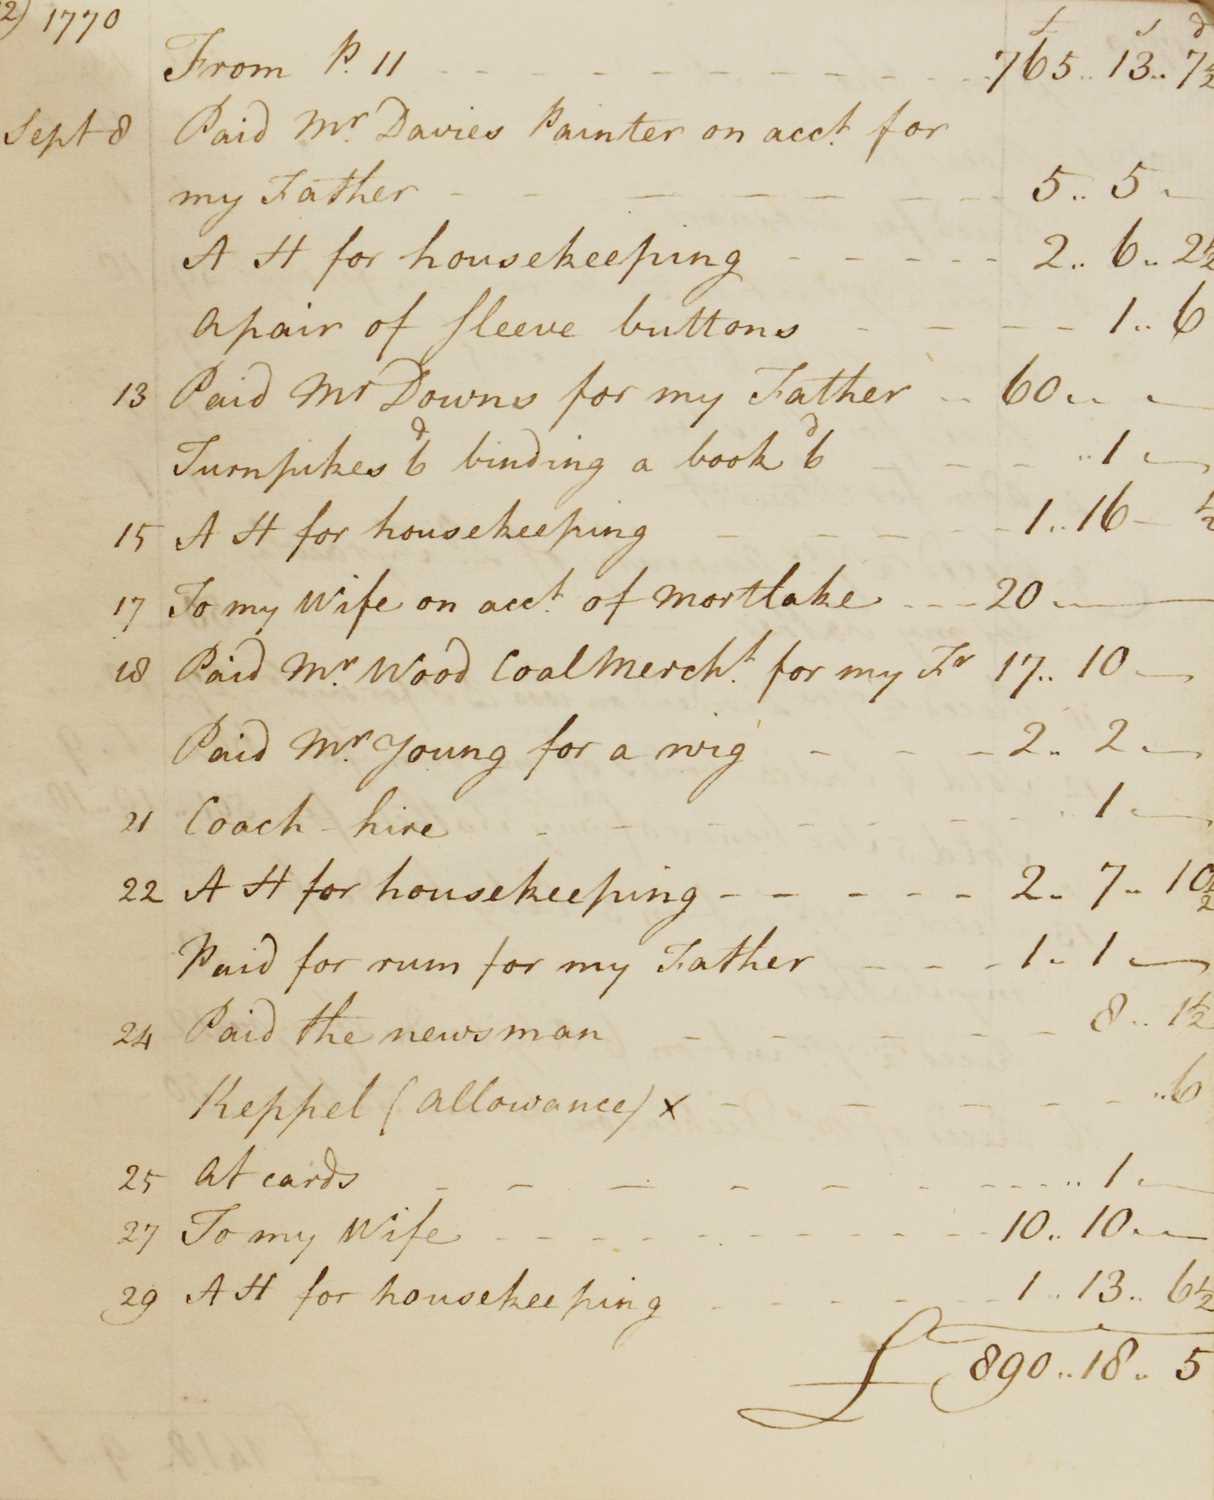 2) 1770
£ s d
From P. 11 - - - - - - - - - - - - 765.. 13.. 7½
Sept 8 Paid Mr. Davies Painter on acct. for
my Father - - - - - - - - 5.. 5 —
A H for housekeeping - - - - - 2.. 6.. 2½
A pair of sleeve buttons - - - - 1.. 6
13 Paid Mr Downs for my Father - - 60.. —
Turnpikes 6d binding a book 6d - - - ..1 —
15 A H for housekeeping - - - - - 1.. 16 — ½
17 To my Wife on acct. of Mortlake - - - 20 .. —
18 Paid Mr. Wood Coal Mercht. for my Fr 17.. 10 —
Paid Mr. Young for a wig - - - - 2.. 2 —
21 Coach - hire - - - - - - - - 1 —
22 A H for housekeeping - - - - - 2.. 7.. 10½
Paid for rum for my Father - - - 1.. 1 —
24 Paid the newsman - - - - - 8.. 1½
Keppel (allowance) x - - - - - - ..6
25 At cards - - - - - - - - - .. 1 —
27 To my Wife - - - - - - - - - - 10.. 10 —
29 A H for housekeeping - - - - - 1.. 13.. 6½
£ 890.. 18.. 5